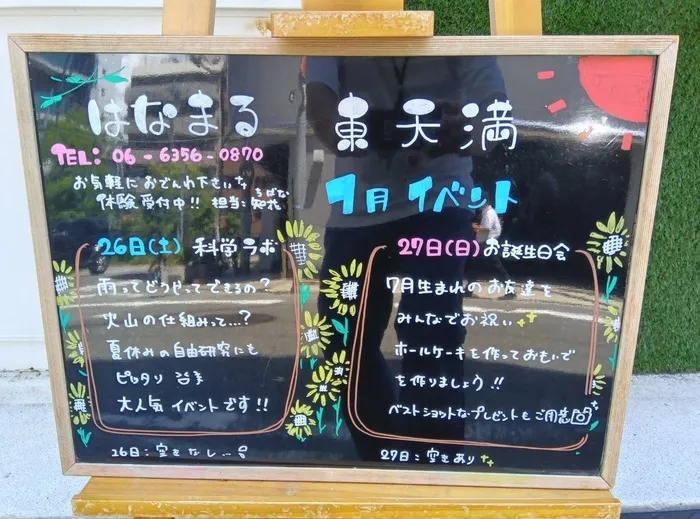 はなまる 東天満
TEL: 06-6356-0870
お気軽におでんわ下さい
体験受付中!! 担当:知花
ちばな
7月 イベント
26日(土) 科学ラボ
雨ってどうやってできるの?
火山の仕組みって...?
夏休みの自由研究にも
ピッタリ
大人気イベントです!!
26日:空きなし...
27日(日) お誕生日会
7月生まれのお友達を
みんなでお祝い
ホールケーキを作っておもいで
を作りましょう!!
ベストショットなプレゼントもご用意
27日:空きあり